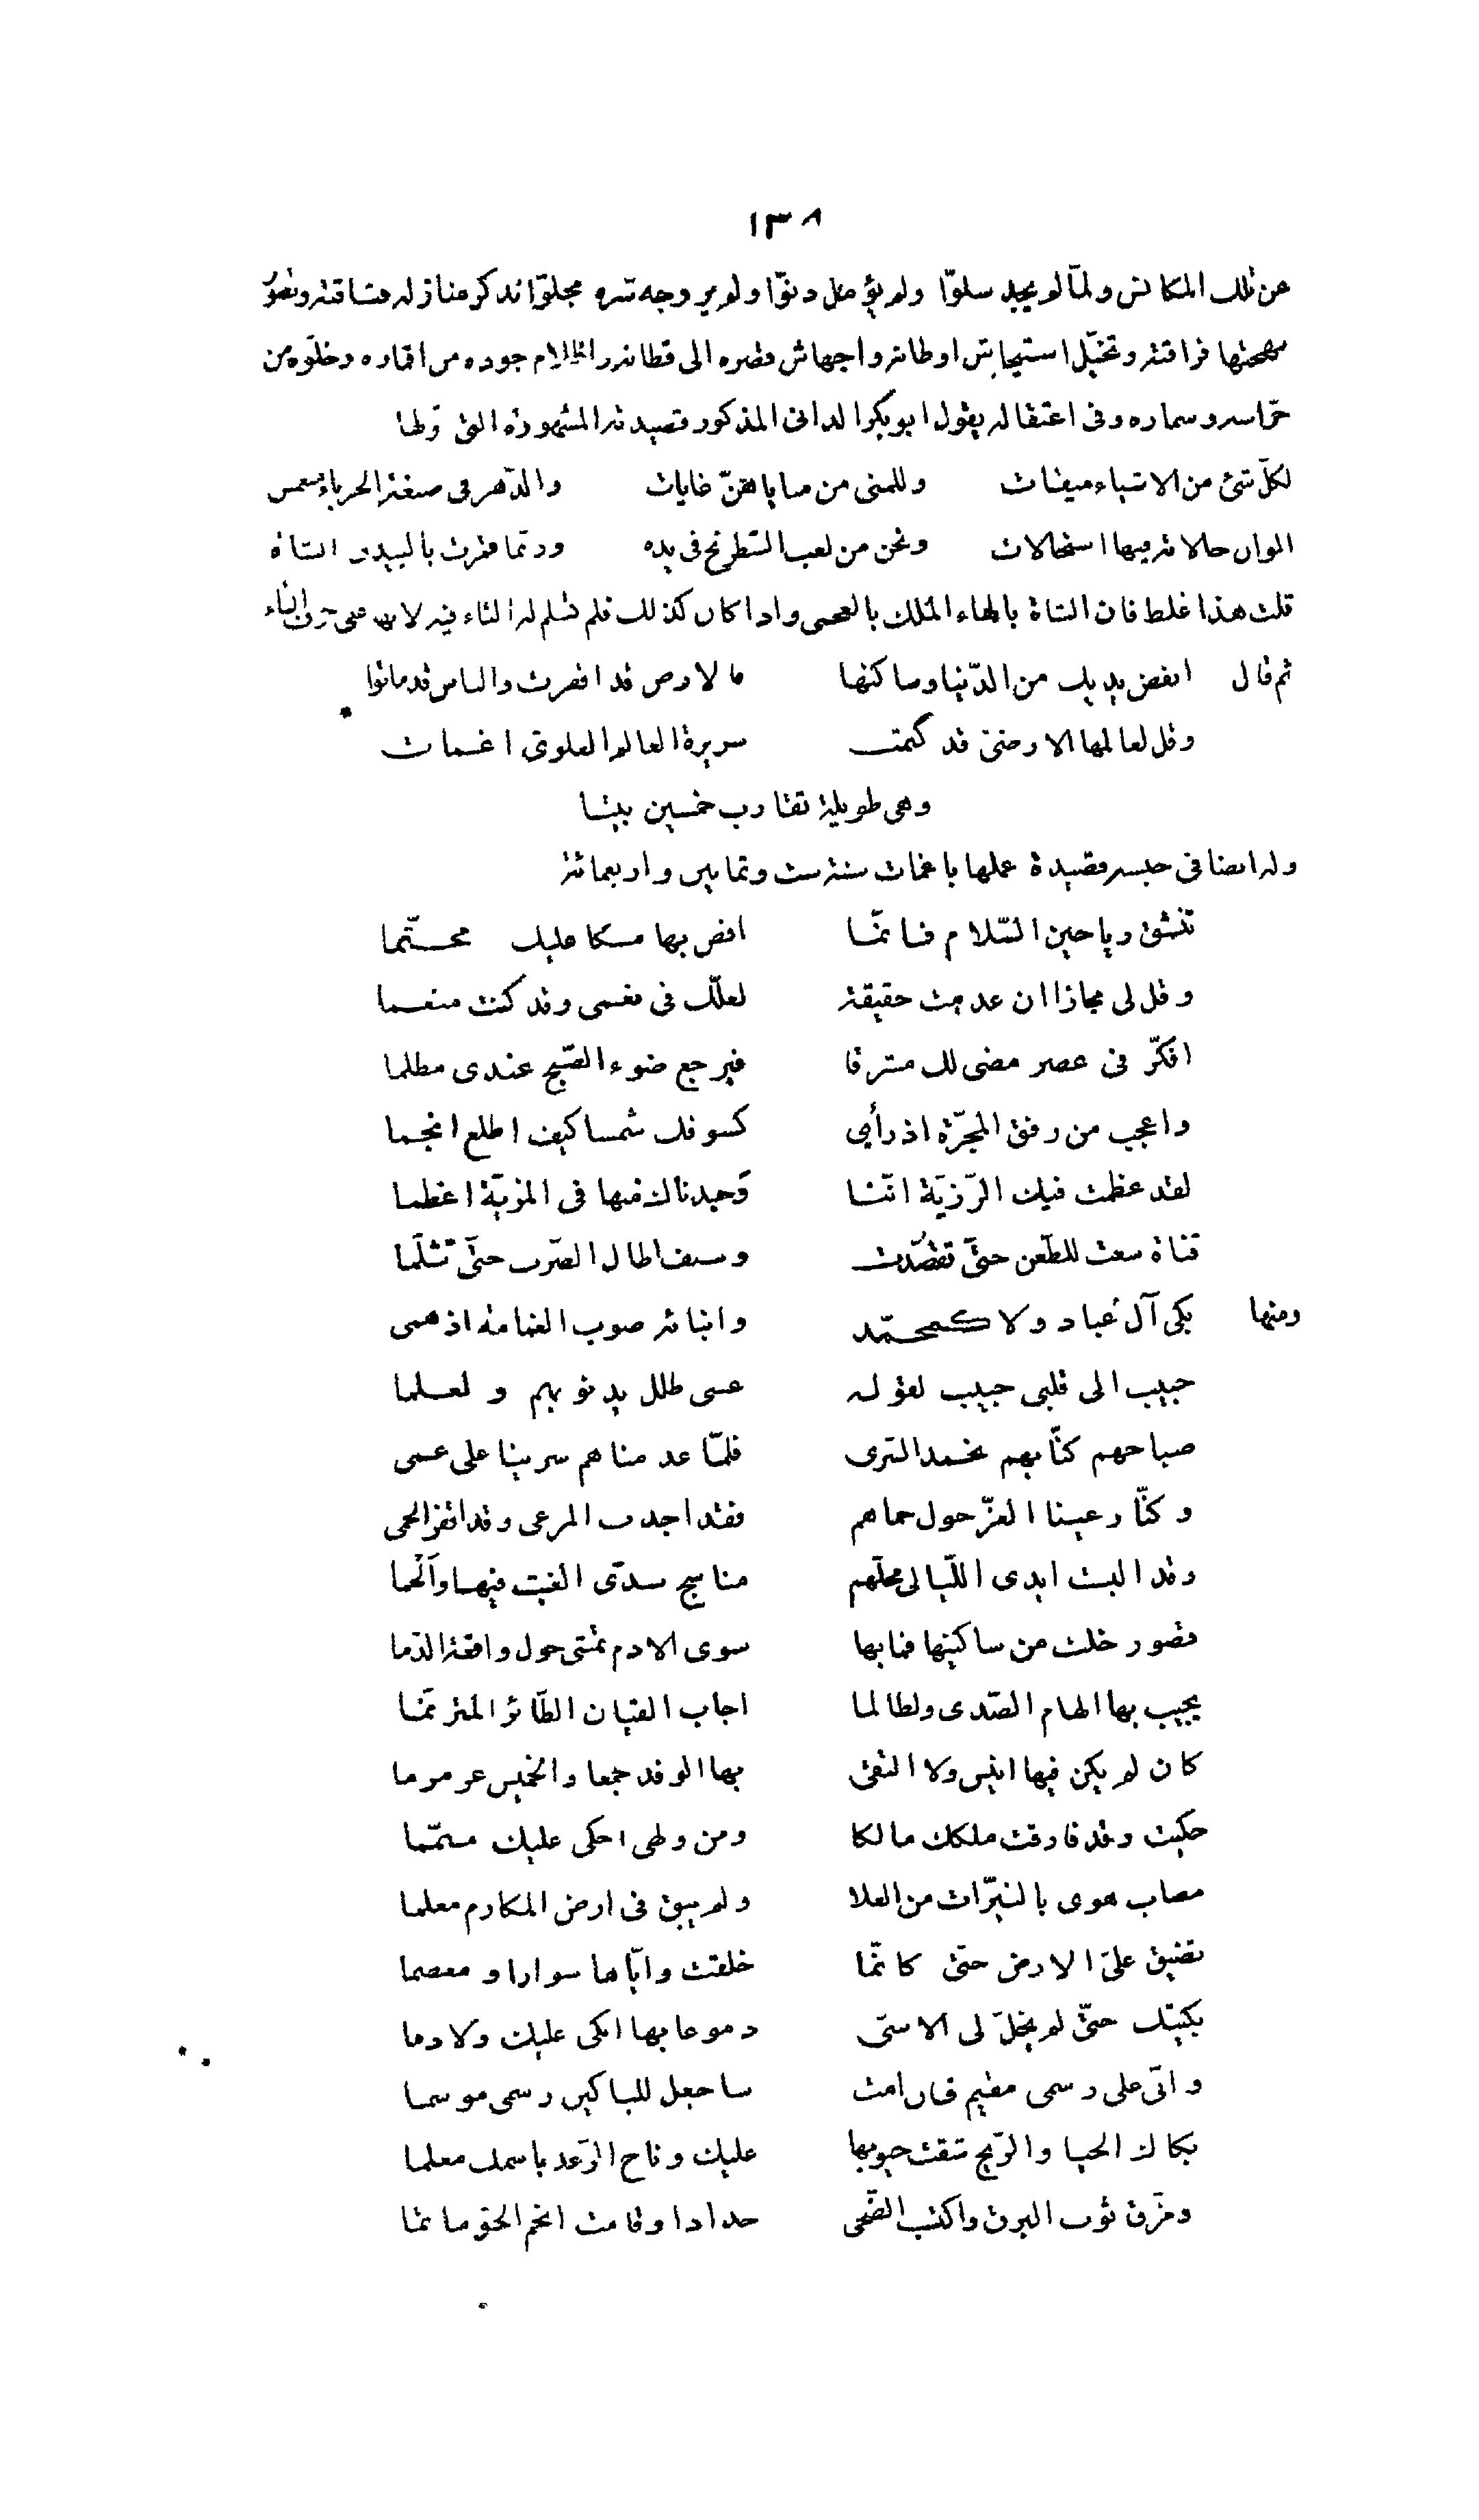 ١٣٨
عن تلك المكانس ولمّا لم يجد سلوّا ولم يؤمل دنوّا ولم ير وجه تسره مجلوّا تذكر منازله فشاقته وتصوّر
بهجتها فراقته وتخيّل استيحاش اوطانه واجهاش قصره الى قطانه واظلام جوده من اقماره وخلوّه من
حرّاسه وسماره وفى اعتقاله يقول ابو بكر الدانى المذكور قصيدته المشهورة التى اوّلها
لكلّ شئ من الاشياء ميقات وللمنى من منايا هنّ غايات والدّهر فى صبغة الحرباء منغمس
الوان حالاته فيها استحالات ونحن من لعب الشّطرنج فى يده وربّما قمرت بالبيدق الشاة
قلت هذا غلط فان الشاة بالهاء الملك بالعجمى واذا كان كذلك فلم تسلم له التاء فيه لانها على حرف التاء
ثم قال انفض يديك من الدّنيا وساكنها فالارض قد اقفرت والناس قد ماتوا
وقل لعالمها الارضىّ قد كتمت سريرة العالم العلوىّ اغمات
وهى طويلة تقارب خمسين بيتا
وله ايضا فى حبسه قصيدة عملها باغمات سنة ست وثمانين واربعمائة
تنشق رياحين السّلام فانّما افض بها مسكا عليك مختّما
وقل لى مجازا ان عدمت حقيقة لعلّك فى نعمى وقد كنت منعما
افكّر فى عصر مضى لك مشرقا فيرجع ضوء الصّبح عندى مظلما
واعجب من رفق المجرّة اذ رأى كسوفك شمسا كيف اطلع انجما
لقد عظمت فيك الرّزيّة انّنا وَجدناك منها فى المزيّة اعظما
قناة سعت للطّعن حتىّ تقصّدت وسيف اطال الضّرب حتّى تثلّما
ومنها بكى آل عُباد ولا كمحمّد وابنائه صوب الغمامة اذ همى
حبيب الى قلبى حبيب لقوله عسى طلل يدنو بهم ولعلما
صباحهم كنّا بهم نحمد السّرى فلمّا عدمناهم سرينا على عمى
وكنّا رعينا العزّ حول حماهم فقد اجدب المرعى وقد اقفر الحمى
وقد البست ايدى اللّيالى محلّهم مناسج سدّى الغيث فيها وألحما
قصور خلت من ساكنيها فما بها سوى الادم تمشى حول واقفة الدّما
يجيب بها الهام الصّدى ولطالما اجاب القيان الطّائر المترنّما
كان لم يكن فيها انيس ولا التقى بها الوفد جمعا والخميس عرمرما
حكيت وقد فارقت ملكك مالكا ومن ولهى احكى عليك متمّما
مصاب هوى بالنيّرات من العلا ولم يبق فى ارض المكارم معلما
تضيق علىّ الارض حتّى كانّما خلقت وايّاها سوارا ومعصما
بكيتك حتّى لم يخلّ لى الاسىّ دموعا بها ابكى عليك ولا دما
وانّى على رسمى مقيم فان امت ساجعل للباكين رسمى موسما
بكاك الحيا والرّيح شقت جيوبها عليك وناح الرّعد باسمك معلما
ومزّق ثوب البرق واكتسب الضّحى حدادا وقامت انجم الجّو ماتما